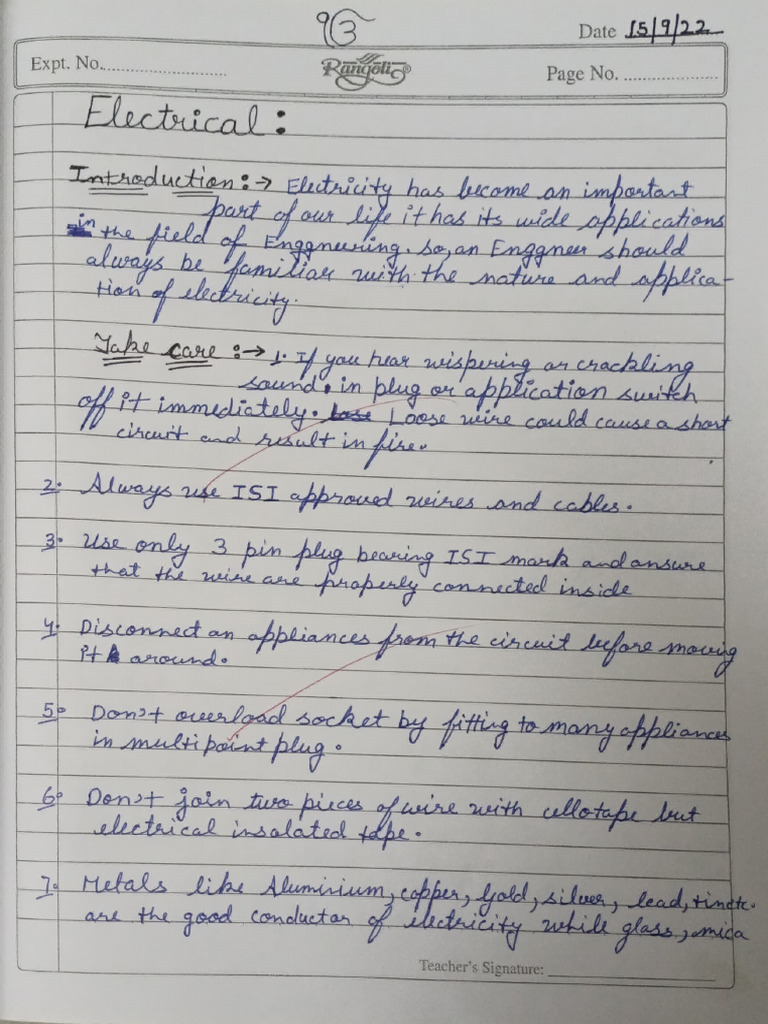 Date 15/9/22
Expt. No.
Rangoli®
Page No.
Electrical:
Introduction:→ Electricity has become an important
part of our life it has its wide applications
in the field of Enggneering. so, an Enggneer should
always be familiar with the nature and applica-
tion of electricity.
Take care:→ 1. If you hear wispering or crackling
sound. in plug or application switch
off it immediately. Loose wire could cause a short
circuit and result in fire.
2. Always use ISI approved wires and cables.
3. Use only 3 pin plug bearing ISI mark and ansure
that the wire are properly connected inside
4. Disconnect an appliances from the circuit before moving
it around.
5. Don't overload socket by fitting to many appliances
in multi point plug.
6. Don't join two pieces of wire with cellotape but
electrical insolated tape.
7. Metals like Aluminium, copper, Gold, silver, lead, tin etc.
are the good conductor of electricity while glass, mica
Teacher's Signature: